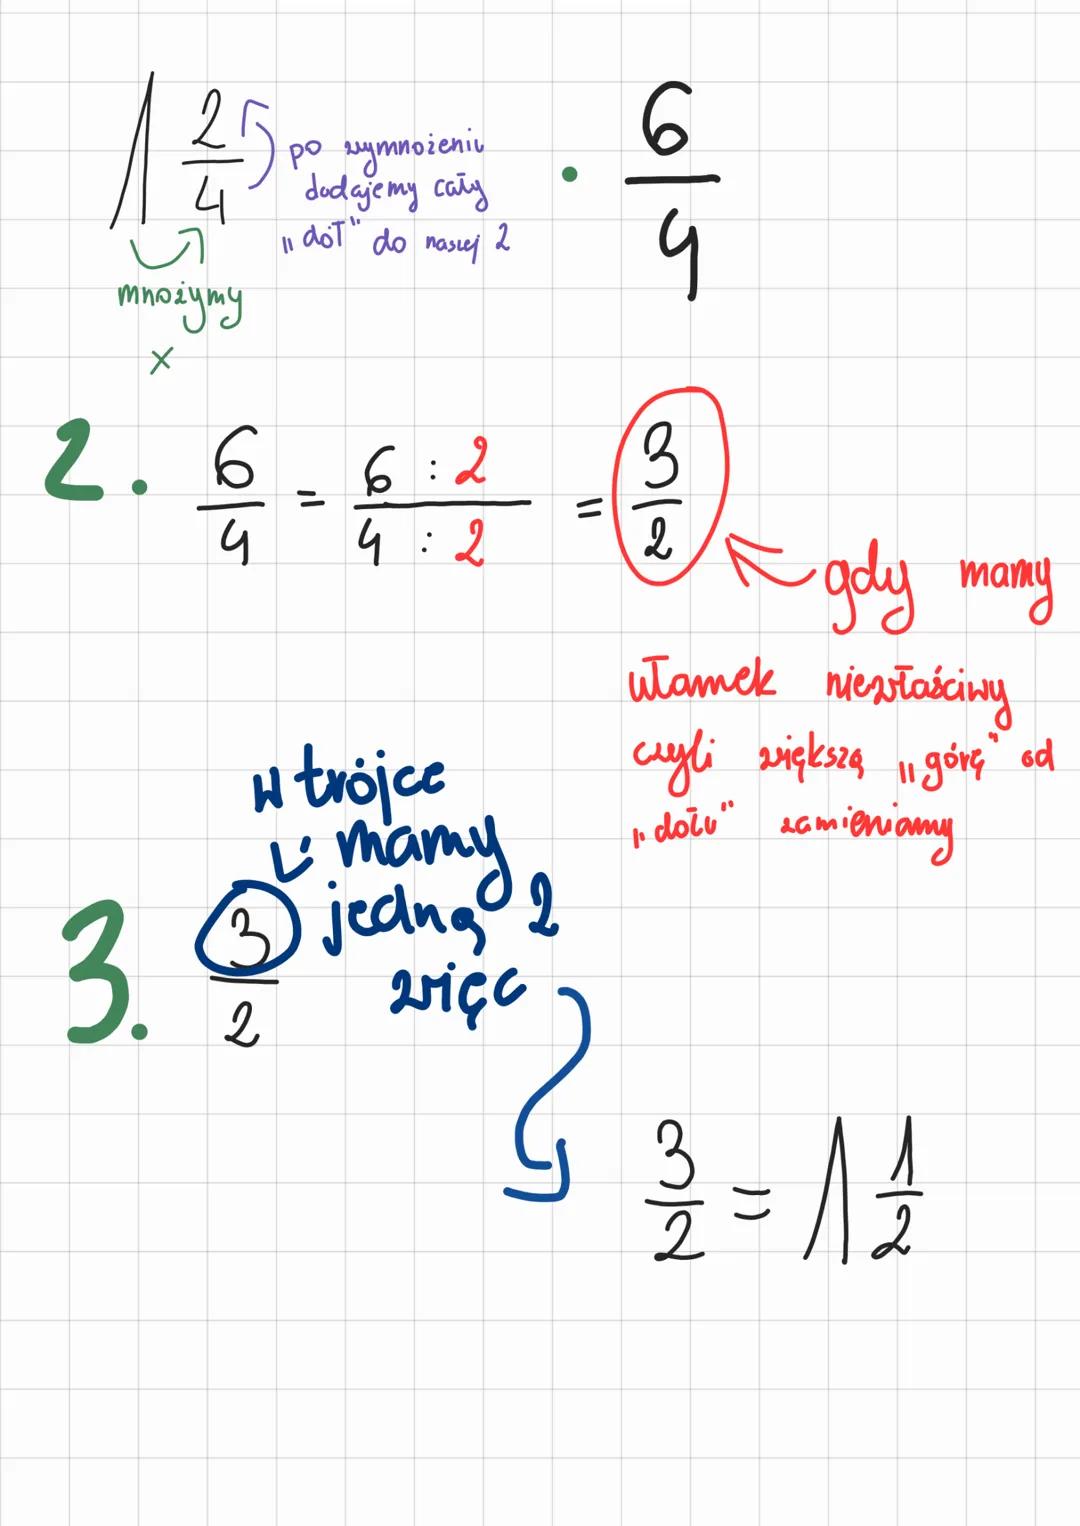 1 2/4 po wymnożeniu dodajemy cały „dół" do naszej 2 • 6/4
mnożymy
×
2. 6/4 = 6 : 2 / 4 : 2 = 3/2
gdy mamy
ułamek niewłaściwy
czyli większą „górę" od
„dołu" zamieniamy
w trójce
mamy
jedną 2
więc
3. 3/2
3/2 = 1 1/2